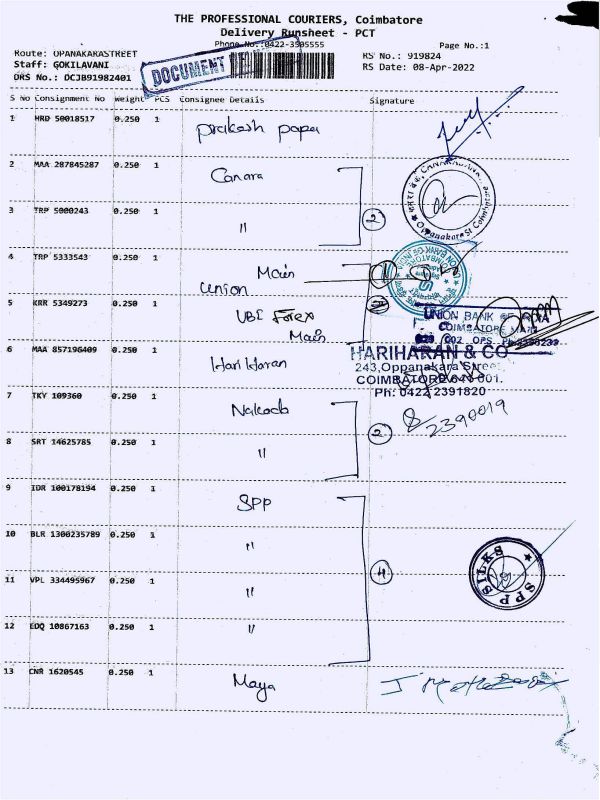 THE PROFESSIONAL COURIERS, Coimbatore
Delivery Runsheet - PCT
Phone No.:0422-3505555
Page No.:1
Route: OPANAKARASTREET
RS No.: 919824
Staff: GOKILAVANI
RS Date: 08-Apr-2022
DRS No.: DCJB91982401
DOCUMENT
S No Consignment No Weight PCS Consignee Details Signature
1 HRD 50018517 0.250 1 Prakash papa
2 MAA 287845287 0.250 1 Canara
3 TRP 5000243 0.250 1 "
2
Oppanakara St
4 TRP 5333543 0.250 1 Main
Union
5 KRR 5349273 0.250 1 UBI Forex
Main
UNION BANK OF
COIMBATORE MAIN
OPS
6 MAA 857196409 0.250 1 Hari Haran
HARIHARAN & CO
243,Oppanakara Street,
COIMBATORE-641 001.
Ph: 0422 2391820
7 TKY 109360 0.250 1 Nakoda
2
2390019
8 SRT 14625785 0.250 1 "
9 IDR 100178194 0.250 1 SPP
10 BLR 1300235789 0.250 1 "
11 VPL 334495967 0.250 1 "
4
SPP SILKS
12 EDQ 10867163 0.250 1 "
13 CNR 1620545 0.250 1 Maya